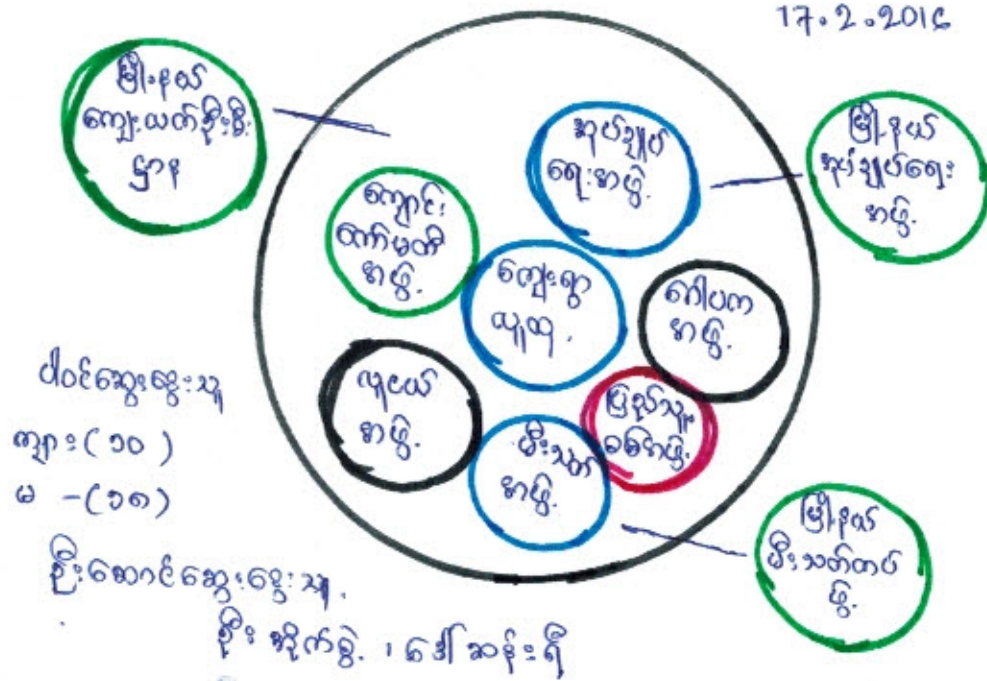 17.2.2014
မြို့နယ်
ကျေးလက်ဦးစီး
ဌာန
အုပ်ချုပ်
ရေးအဖွဲ့
မြို့နယ်
အုပ်ချုပ်ရေး
အဖွဲ့
ကျောင်း
ကော်မတီ
အဖွဲ့
ကျေးရွာ
လူထု
ဂေါပက
အဖွဲ့
လူငယ်
အဖွဲ့
ပြည်သူ့
စစ်အဖွဲ့
မီးသတ်
အဖွဲ့
မြို့နယ်
မီးသတ်တပ်
ဖွဲ့
ပါဝင်ဆွေးနွေးသူ
ကျား (၁၀)
မ - (၁၈)
ဦးဆောင်ဆွေးနွေးသူ
ဦးအိုက်စွဲ့ ၊ ဒေါ်ဆန်းရီ